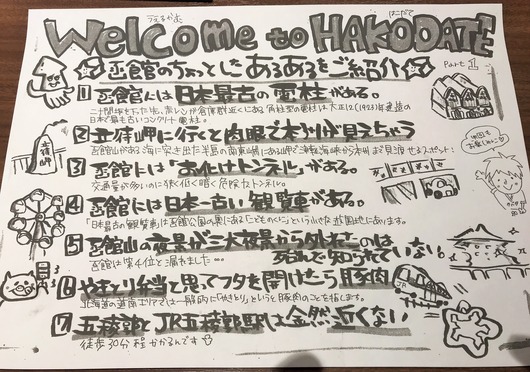 うぇるかむ
はこだて
Welcome to HAKODATE
函館のちょっとしたあるあるをご紹介
Part 1
1 函館には日本最古の電柱がある。
二十間坂を下った先、赤レンガ倉庫群近くにある角柱型の電柱は大正12(1923)年建造の
日本で最も古いコンクリート電柱。
2 立待岬に行くと肉眼で本州が見えちゃう
函館山がある海に突き出た半島の南東端にある岬で津軽海峡から本州まで見渡せるスポット!
立待岬
3 函館には「お化けトンネル」がある。
交通量が多いのに狭く低く暗く危険なトンネル。
4 函館には日本一古い観覧車がある。
「日本最古の観覧車」は函館公園の奥にある「こどものくに」という小さな遊園地にあります。
5 函館山の夜景が三大夜景から外れたのは
死ぬほど知られていない。
函館は第4位と漏れました…
6 やきとり弁当と思ってフタを開けたら豚肉
北海道の道南エリアでは一般的に「やきとり」というと豚肉のことを指します。
JR
7 五稜郭とJR五稜郭駅は全然近くない
徒歩30分程かかるんです